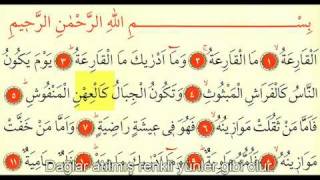 بِسْمِ اللهِ الرَّحْمٰنِ الرَّحِيمِ
اَلْقَارِعَةُ ﴿١﴾ مَا الْقَارِعَةُ ﴿٢﴾ وَمَٓا اَدْرٰيكَ مَا الْقَارِعَةُ ﴿٣﴾ يَوْمَ يَكُونُ
النَّاسُ كَالْفَرَاشِ الْمَبْثُوثِ ﴿٤﴾ وَتَكُونُ الْجِبَالُ كَالْعِهْنِ الْمَنْفُوشِ ﴿٥﴾
فَاَمَّا مَنْ ثَقُلَتْ مَوَازِينُهُ ﴿٦﴾ فَهُوَ فِى عِيشَةٍ رَاضِيَةٍ ﴿٧﴾ وَاَمَّا مَنْ خَفَّتْ
مَوَازِينُهُ ﴿٨﴾ ﴿٩﴾ ﴿١٠﴾ حَامِيَةٌ ﴿١١﴾
Dağlar atılmış renkli yünler gibi olur.